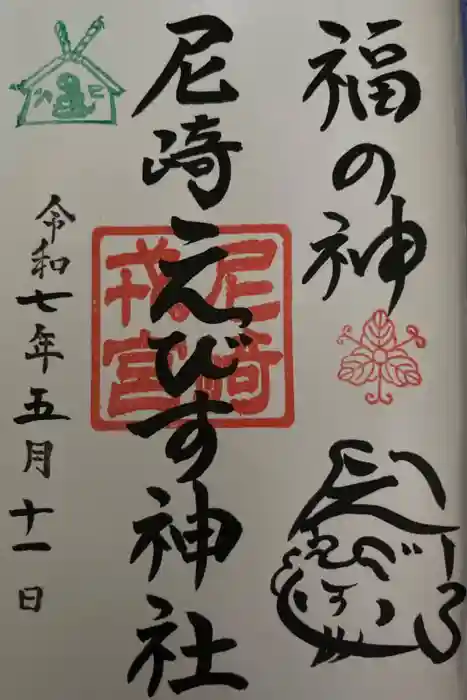 福の神
尼崎えびす神社
尼崎
戎宮
令和七年五月十一日
えびす